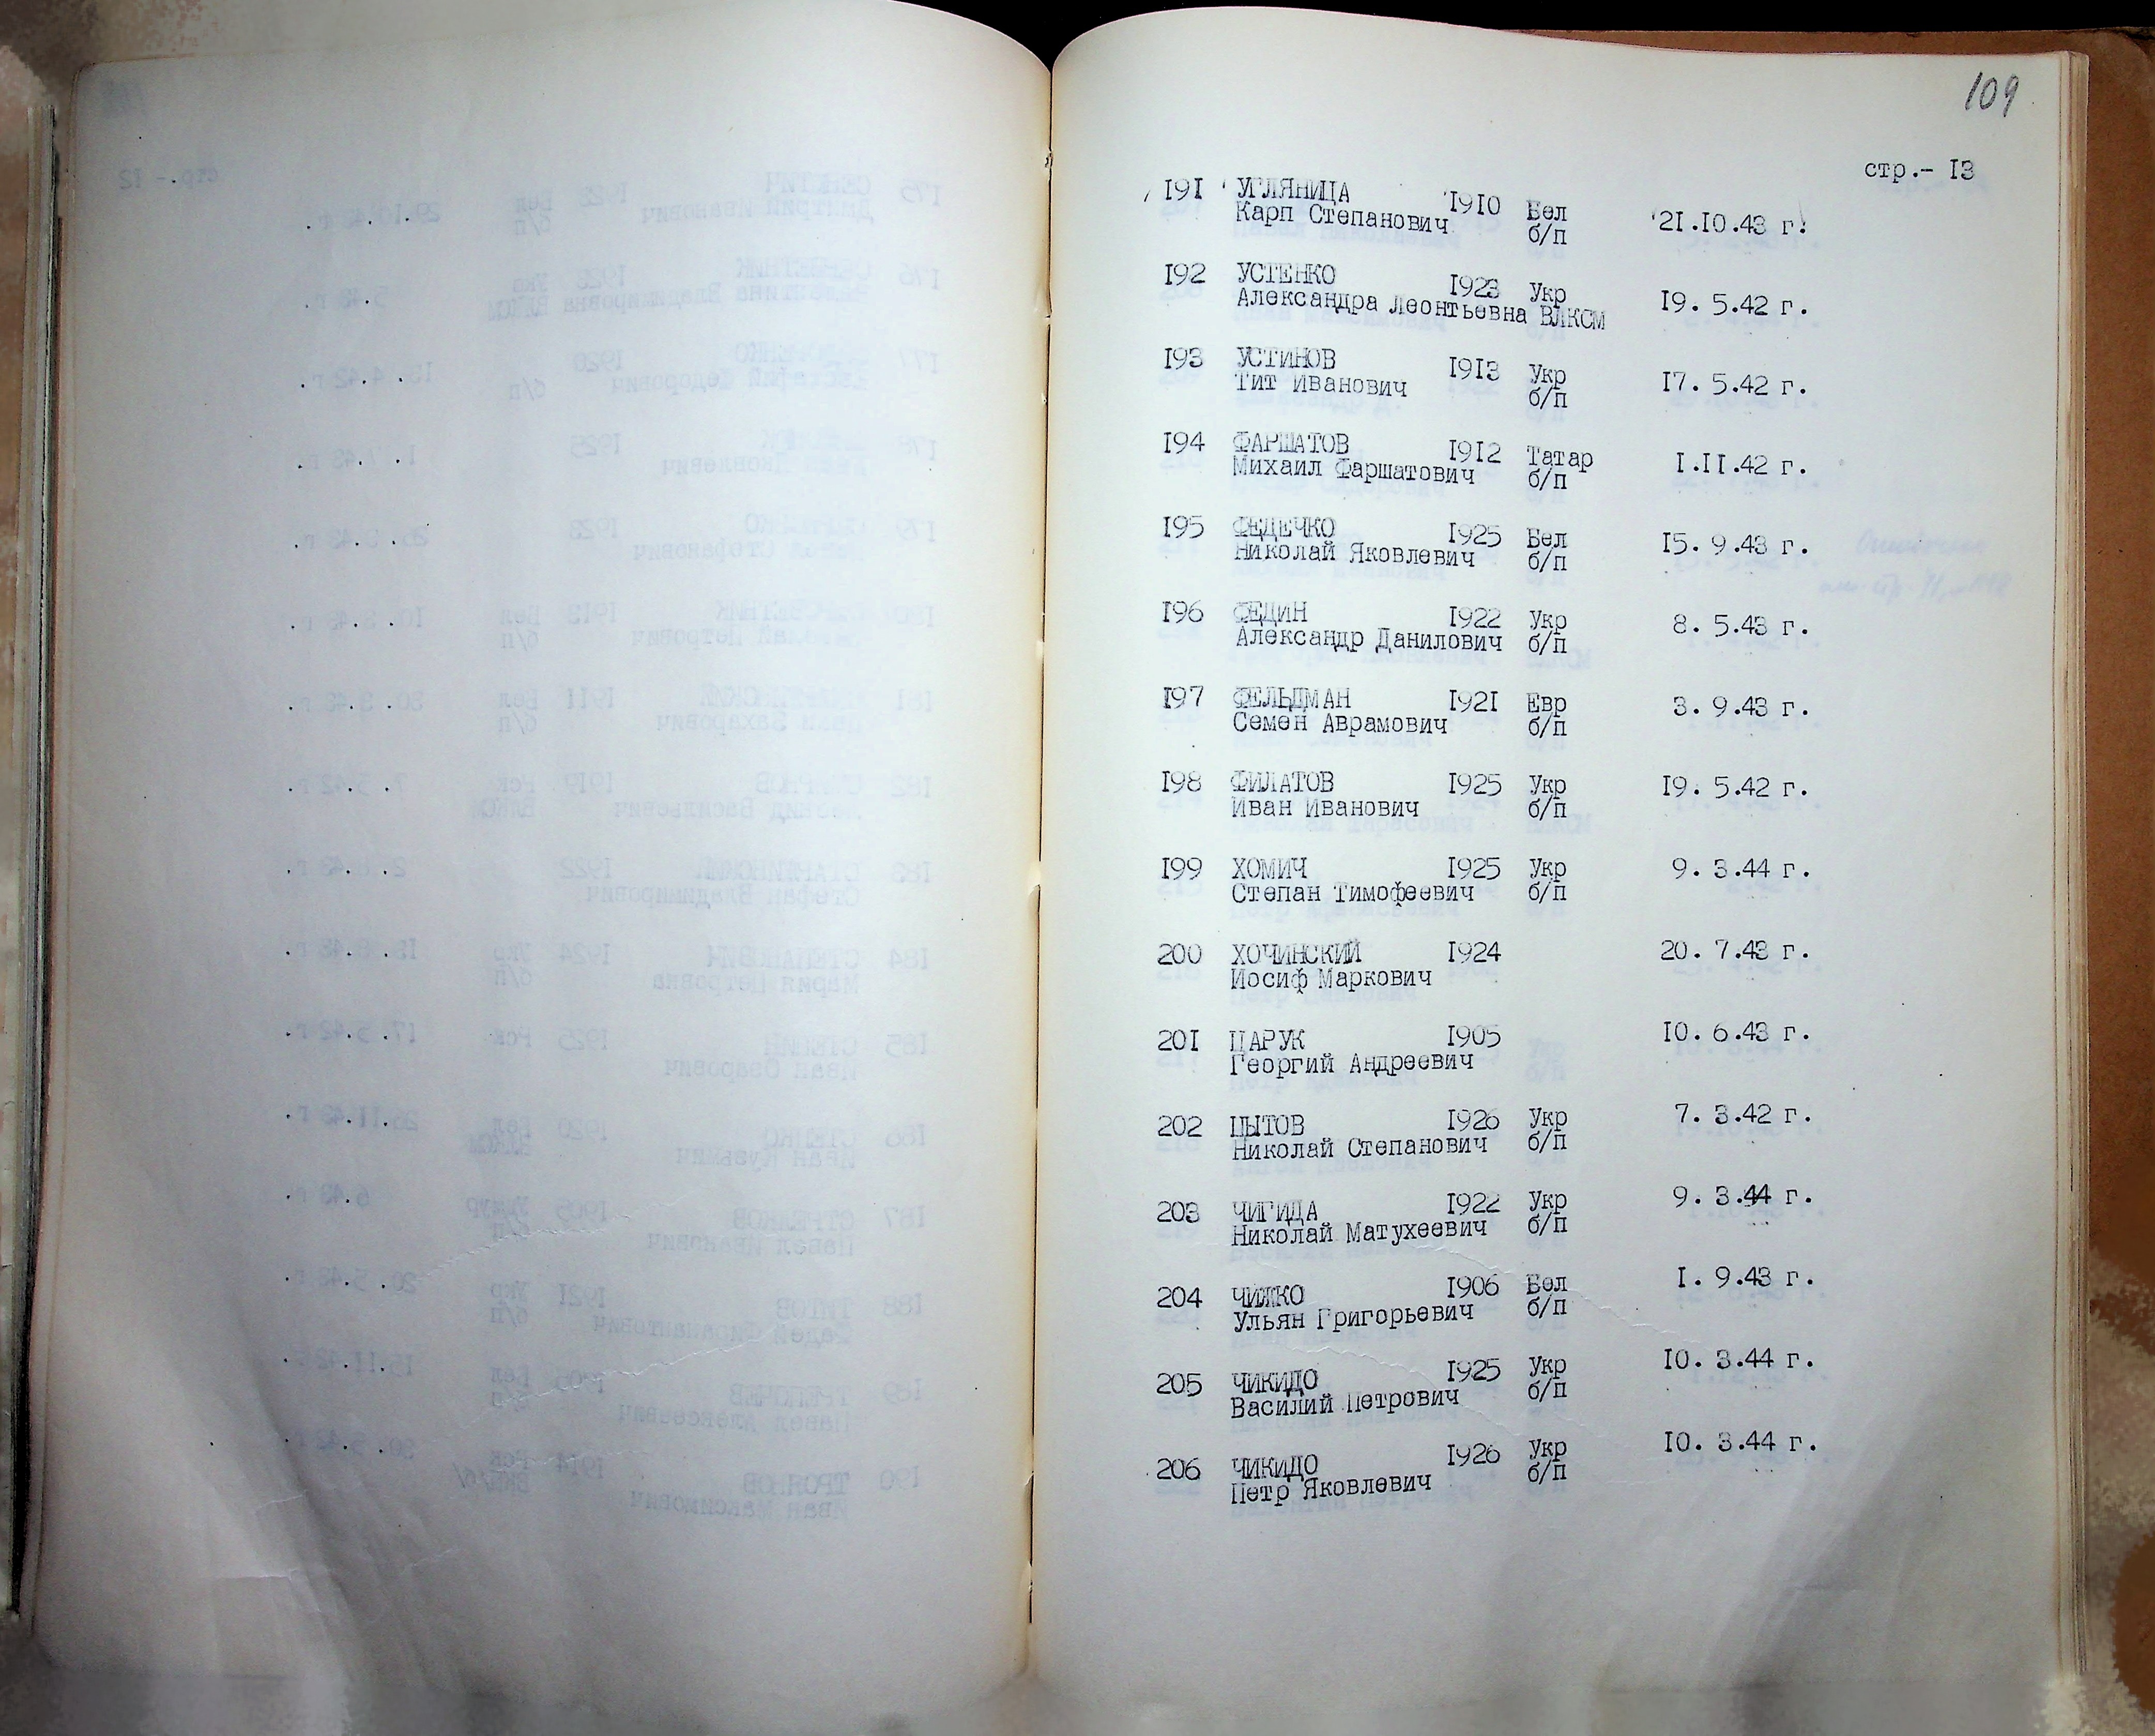 109
стр.- 13
191 УГЛЯНИЦА 1910 Бел 21.10.43 г.
Карп Степанович б/п
192 УСТЕНКО 1923 Укр 19. 5.42 г.
Александра Леонтьевна ВЛКСМ
193 УСТИНОВ 1913 Укр 17. 5.42 г.
Тит Иванович б/п
194 ФАРШАТОВ 1912 Татар 1.11.42 г.
Михаил Фаршатович б/п
195 ФЕДЕЧКО 1925 Бел 15. 9.43 г.
Николай Яковлевич б/п
196 ФЕДИН 1922 Укр 8. 5.43 г.
Александр Данилович б/п
197 ФЕЛЬДМАН 1921 Евр 3. 9.43 г.
Семен Аврамович б/п
198 ФИЛАТОВ 1925 Укр 19. 5.42 г.
Иван Иванович б/п
199 ХОМИЧ 1925 Укр 9. 3.44 г.
Степан Тимофеевич б/п
200 ХОЧИНСКИЙ 1924 20. 7.43 г.
Иосиф Маркович
201 ЦАРУК 1905 10. 6.43 г.
Георгий Андреевич
202 ЦЫТОВ 1926 Укр 7. 3.42 г.
Николай Степанович б/п
203 ЧИГИДА 1922 Укр 9. 3.44 г.
Николай Матухеевич б/п
204 ЧИЖКО 1906 Бел 1. 9.43 г.
Ульян Григорьевич б/п
205 ЧИКИДО 1925 Укр 10. 3.44 г.
Василий Петрович б/п
206 ЧИКИДО 1926 Укр 10. 3.44 г.
Петр Яковлевич б/п